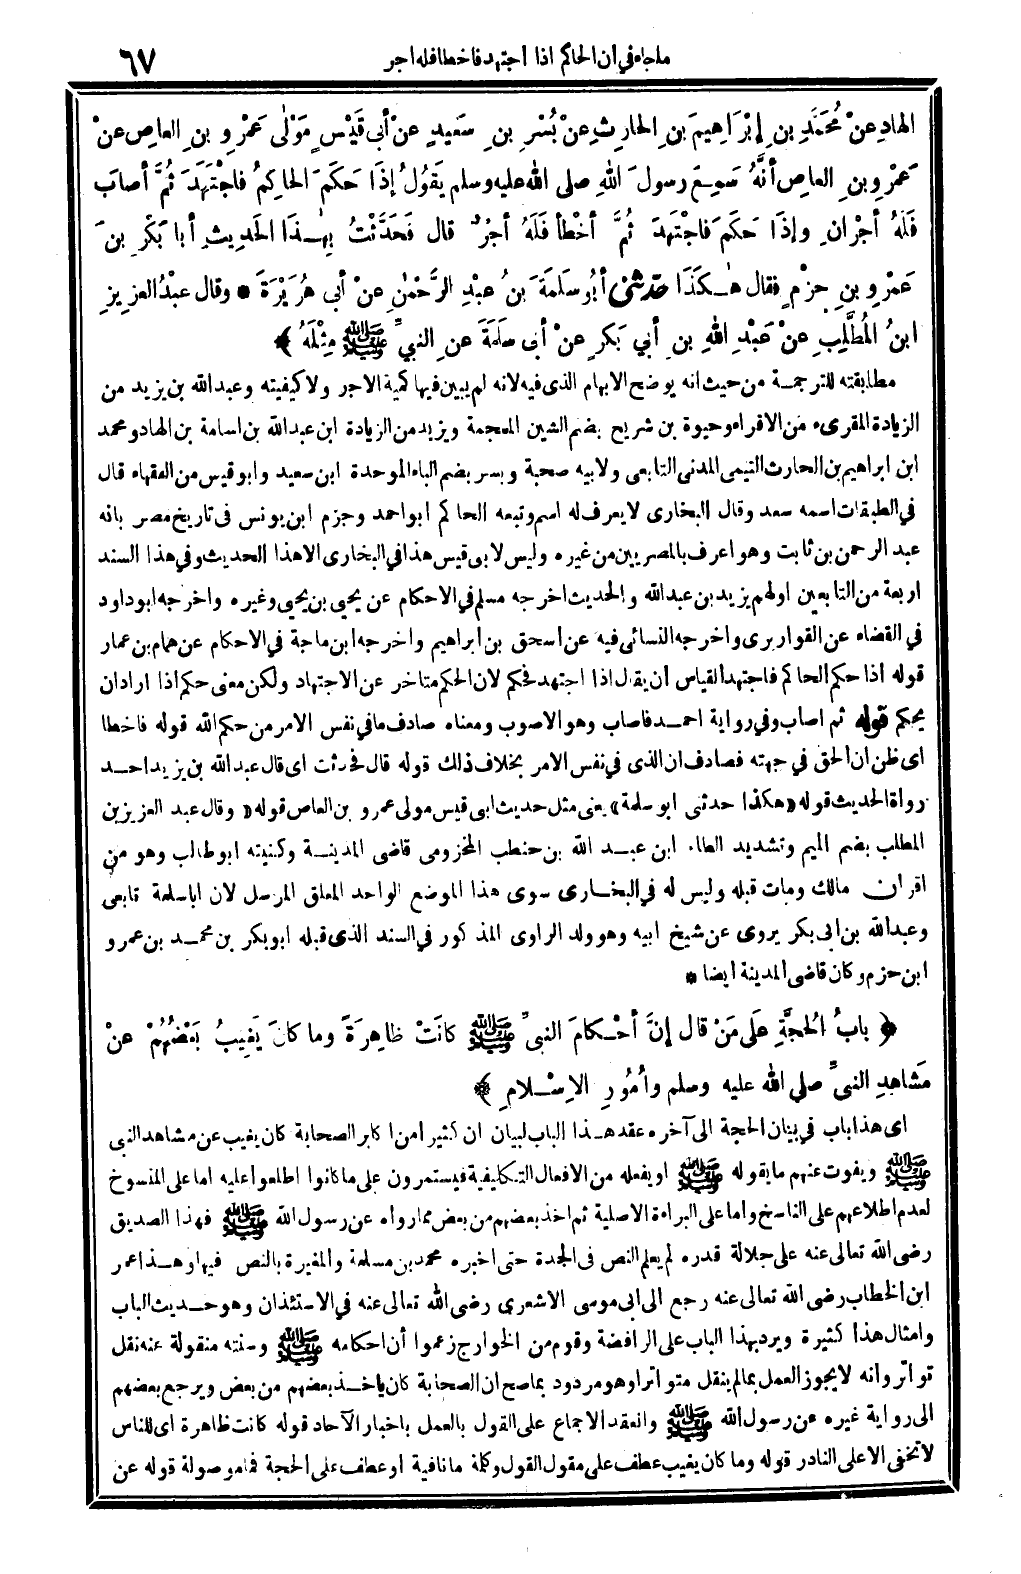 ماجاء في ان الحاكم اذا اجتهد فاخطا فله اجر ٦٧
الهاد عنْ مُحَمَّدِ بنِ إبْرَاهِيمَ بنِ الحارِثِ عنْ بُسْرِ بنِ سَعِيدٍ عنْ أبي قَيْسٍ مَوْلَى عَمْرِو بنِ العاصِ عنْ
عَمْرِو بنِ العاصِ أنَّهُ سَمِعَ رسولَ اللهِ صلى الله عليه وسلم يَقُولُ إذَا حَكَمَ الحاكِمُ فاجْتَهَدَ ثُمَّ أصابَ
فَلَهُ أجْرانِ وإذَا حَكَمَ فَاجْتَهَدَ ثُمَّ أخْطأ فَلَهُ أجْرٌ قال فَحَدَّثْتُ بِهٰذَا الحَدِيثِ أبا بَكْرِ بنَ
عَمْرِو بنِ حزْمٍ فقال هٰكَذَا حدّثني أبُو سَلَمَةَ بنُ عبْدِ الرَّحْمٰنِ عنْ أبى هُرَيْرَةَ * وقال عبْدُ العزِيزِ
ابنُ المُطَّلِبِ عنْ عَبْدِ اللهِ بنِ أبي بَكرٍ عنْ أبى سَلَمَةَ عنِ النبيِّ ﷺ مِثْلَهُ ﴾
مطابقته للترجمة من حيث انه يوضح الابهام الذى فيه لانه لم يبين فيها كمية الاجر ولا كيفيته وعبد الله بن يزيد من
الزيادة المقرىء من الاقراء وحيوة بن شريح بضم الشين المعجمة ويزيد من الزيادة ابن عبد الله بن اسامة بن الهاد ومحمد
ابن ابراهيم بن الحارث التيمى المدنى التابعى ولابيه صحبة وبسر بضم الباء الموحدة ابن سعيد وابو قيس من الفقهاء قال
في الطبقات اسمه سعد وقال البخارى لا يعرف له اسم وتبعه الحاكم ابو احمد وجزم ابن يونس فى تاريخ مصر بانه
عبد الرحمن بن ثابت وهو اعرف بالمصريين من غيره وليس لابى قيس هذا في البخارى الا هذا الحديث وفي هذا السند
اربعة من التابعين اولهم يزيد بن عبد الله والحديث اخرجه مسلم في الاحكام عن يحيى بن يحيى وغيره واخرجه ابو داود
في القضاء عن القواريرى واخرجه النسائى فيه عن اسحق بن ابراهيم واخرجه ابن ماجة في الاحكام عن همام بن عمار
قوله اذا حكم الحاكم فاجتهد القياس أن يقال اذا اجتهد فحكم لان الحكم متاخر عن الاجتهاد ولكن معنى حكم اذا ارادان
يحكم قوله ثم اصاب وفي رواية احمد فاصاب وهو الاصوب ومعناه صادف ما في نفس الامر من حكم الله قوله فاخطا
اى ظن ان الحق في جهته فصادف ان الذى في نفس الامر بخلاف ذلك قوله قال فحدثت اى قال عبد الله بن يزيد احد
رواة الحديث قوله «هكذا حدثنى ابو سلمة» يعنى مثل حديث ابى قيس مولى عمرو بن العاص قوله «وقال عبد العزيز بن
المطلب بضم الميم وتشديد الطاء ابن عبد الله بن حنطب المخزومى قاضى المدينة وكنيته ابو طالب وهو من
اقران مالك ومات قبله وليس له في البخارى سوى هذا الموضع الواحد المعلق المرسل لان ابا سلمة تابعى
وعبد الله بن ابى بكر يروى عن شيخ ابيه وهو ولد الراوى المذكور في السند الذى قبله ابو بكر بن محمد بن عمرو
ابن حزم وكان قاضى المدينة ايضا *
﴿ بابُ الحُجَّةِ عَلَى مَنْ قال إنَّ أحْكامَ النبيِّ ﷺ كانَتْ ظاهِرَةً وما كانَ يَغِيبُ بَعْضُهُمْ عنْ
مَشاهِدِ النبيِّ صلي الله عليه وسلم وأُمُورِ الإسْلامِ ﴾
اى هذا باب في بيان الحجة الى آخره عقد هذا الباب لبيان ان كثيرا من اكابر الصحابة كان يغيب عن مشاهد النبى
ﷺ ويفوت عنهم ما يقوله ﷺ او يفعله من الافعال التكليفية فيستمرون على ما كانوا اطلعوا عليه اما على المنسوخ
لعدم اطلاعهم على الناسخ واما على البراءة الاصلية ثم اخذ بعضهم من بعض مما رواه عن رسول الله ﷺ فهذا الصديق
رضى الله تعالى عنه على جلالة قدره لم يعلم النص فى الجدة حتى اخبره محمد بن مسلمة والمغيرة بالنص فيها وهذا عمر
ابن الخطاب رضى الله تعالى عنه رجع الى ابى موسى الاشعرى رضى الله تعالى عنه في الاستئذان وهو حديث الباب
وامثال هذا كثيرة ويرد بهذا الباب على الرافضة وقوم من الخوارج زعموا أن احكامه ﷺ وسنته منقولة عنه نقل
تواتر وانه لا يجوز العمل بما لم ينقل متواترا وهو مردود بما صح ان الصحابة كان ياخذ بعضهم من بعض ويرجع بعضهم
الى رواية غيره عن رسول الله ﷺ وانعقد الاجماع على القول بالعمل باخبار الآحاد قوله كانت ظاهرة اى للناس
لا تخفى الا على النادر قوله وما كان يغيب عطف على مقول القول وكلمة ما نافية او عطف على الحجة فما موصولة قوله عن